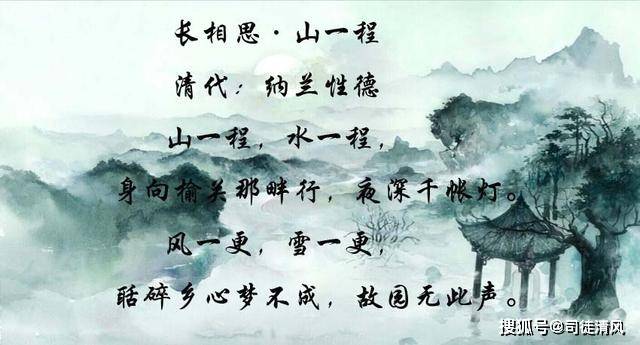 长相思·山一程
清代：纳兰性德
山一程，水一程，
身向榆关那畔行，夜深千帐灯。
风一更，雪一更，
聒碎乡心梦不成，故园无此声。
搜狐号@司徒清风